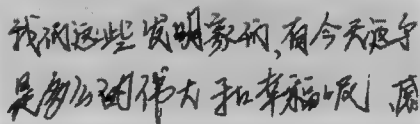 我们这些发明家们,有今天这个
是多么的伟大和幸福呀,原